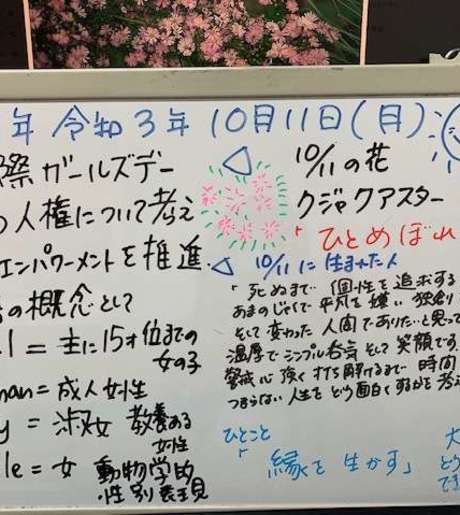 年 令和3年 10月11日(月)
際ガールズデー
人権について考え
エンパワーメントを推進
の概念として
l = 主に15才位までの
女の子
man = 成人女性
y = 淑女 教養ある
女性
le = 女 動物学的
・性別表現
10/11の花
クジャクアスター
「ひとめぼれ
10/11に生まれた人
「死ぬまで個性を追求する
あまのじゃくで平凡を嫌い 独創
そして変わった人間でありたいと思って
温厚でシンプル呑気そして笑顔です
警戒心強く打ち解けるまで時間
つまらない人生をどう面白くするかを考
ひとこと
「縁を生かす」
大
どう
でき